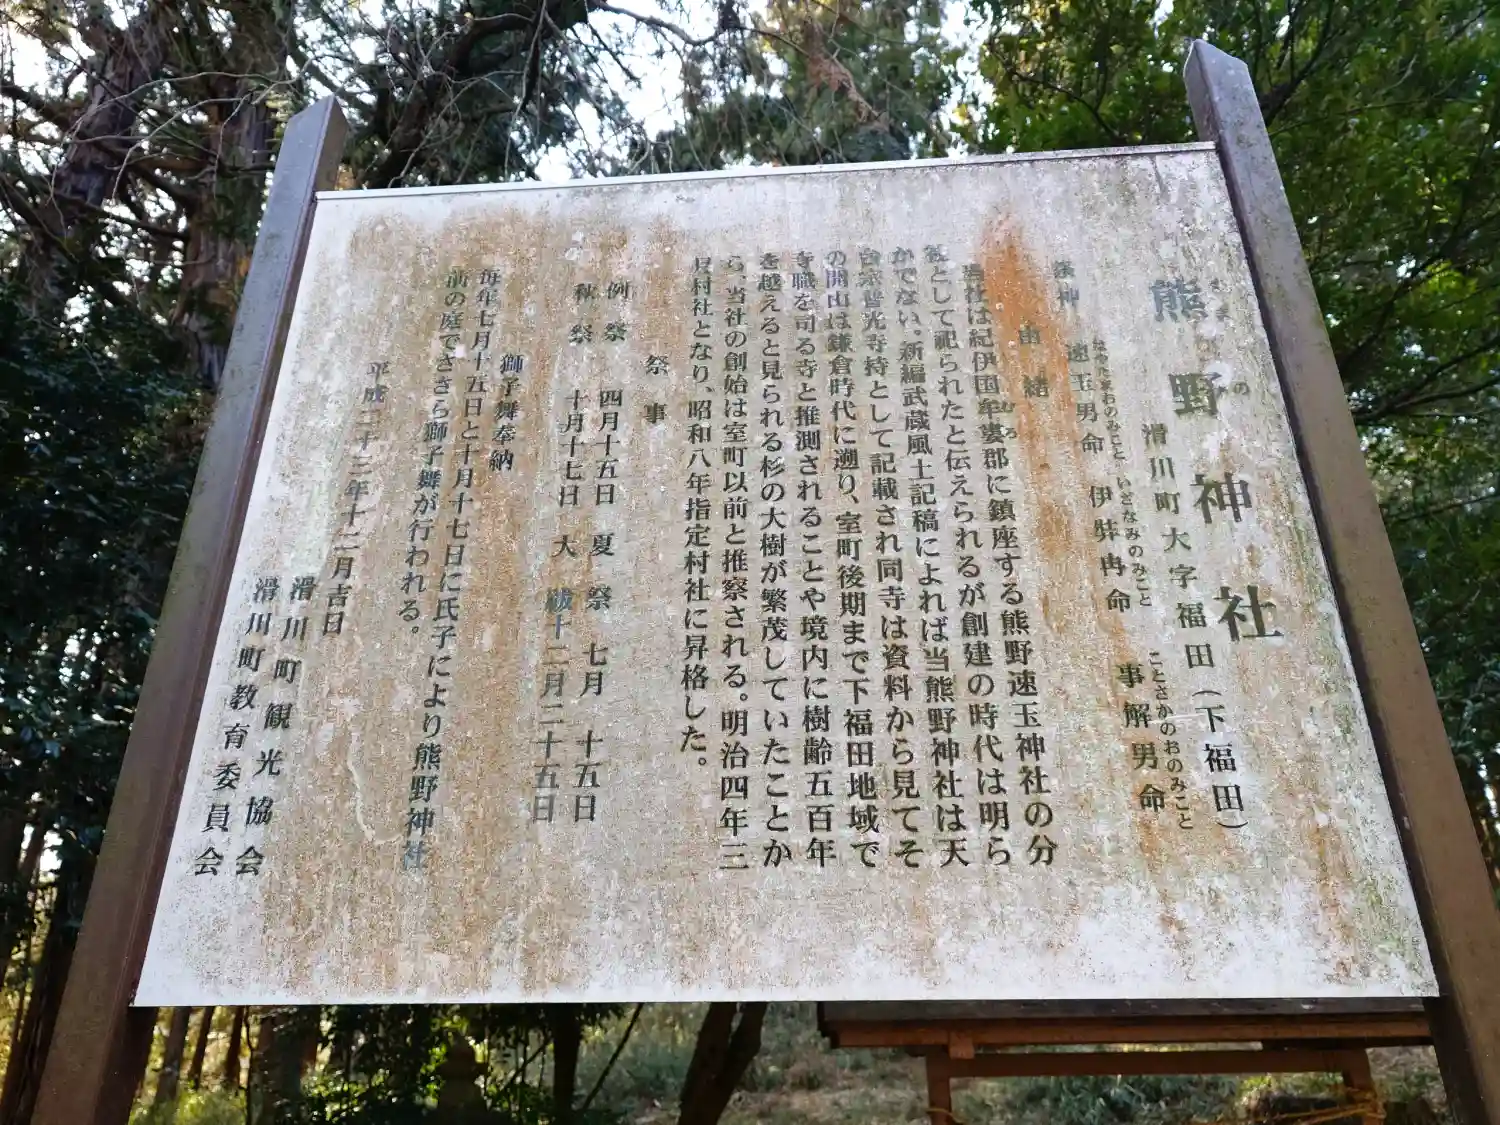 熊野神社
くまの
滑川町大字福田（下福田）
祭神　速玉男命　伊弉冉命　事解男命
はやたまおのみこと　いざなみのみこと　ことさかのおのみこと
由緒
当社は紀伊国牟婁郡に鎮座する熊野速玉神社の分
むろ
社として祀られたと伝えられるが創建の時代は明ら
かでない。新編武蔵風土記稿によれば当熊野神社は天
台宗普光寺持として記載され同寺は資料から見てそ
の開山は鎌倉時代に遡り、室町後期まで下福田地域で
寺職を司る寺と推測されることや境内に樹齢五百年
を越えると見られる杉の大樹が繁茂していたことか
ら、当社の創始は室町以前と推察される。明治四年三
月村社となり、昭和八年指定村社に昇格した。
祭事
例祭　四月十五日　夏祭　七月　十五日
秋祭　十月十七日　大祓十二月二十五日
獅子舞奉納
毎年七月十五日と十月十七日に氏子により熊野神社
前の庭でささら獅子舞が行われる。
平成二十三年十二月吉日
滑川町観光協会
滑川町教育委員会